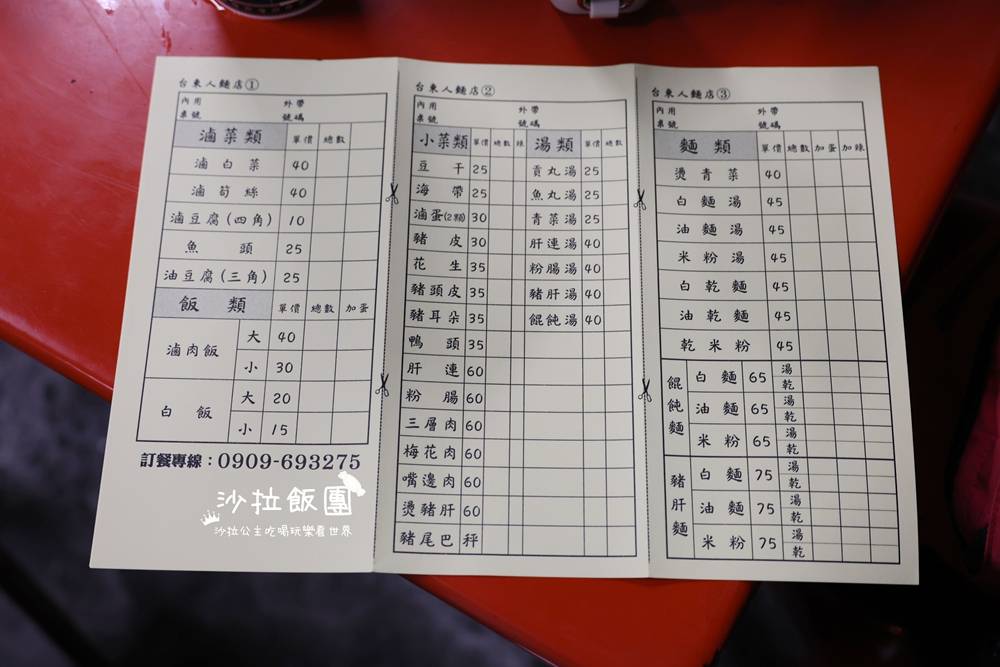 台東人麵店①
內用 外帶
桌號 號碼
滷菜類 單價 總數
滷白菜 40
滷筍絲 40
滷豆腐(四角) 10
魚頭 25
油豆腐(三角) 25
飯類 單價 總數 加蛋
滷肉飯 大 40
小 30
白飯 大 20
小 15
訂餐專線：0909-693275
沙拉飯團
沙拉公主吃喝玩樂看世界
台東人麵店②
內用 外帶
桌號 號碼
小菜類 單價 總數 辣 湯類 單價 總數
豆干 25 貢丸湯 25
海帶 25 魚丸湯 25
滷蛋(2顆) 30 青菜湯 25
豬皮 30 肝連湯 40
花生 35 粉腸湯 40
豬頭皮 35 豬肝湯 40
豬耳朵 35 餛飩湯 40
鴨頭 35
肝連 60
粉腸 60
三層肉 60
梅花肉 60
嘴邊肉 60
燙豬肝 60
豬尾巴 秤
台東人麵店③
內用 外帶
桌號 號碼
麵類 單價 總數 加蛋 加辣
燙青菜 40
白麵湯 45
油麵湯 45
米粉湯 45
白乾麵 45
油乾麵 45
乾米粉 45
餛飩麵 白麵 65 湯
乾
油麵 65 湯
乾
米粉 65 湯
乾
豬肝麵 白麵 75 湯
乾
油麵 75 湯
乾
米粉 75 湯
乾